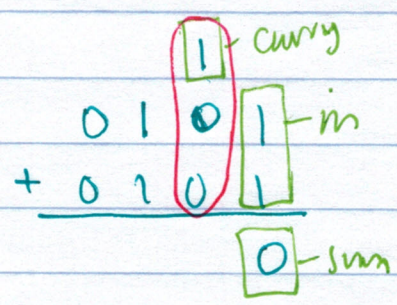 1 carry
0 1 0 1 in
+ 0 1 0 1
0 sum